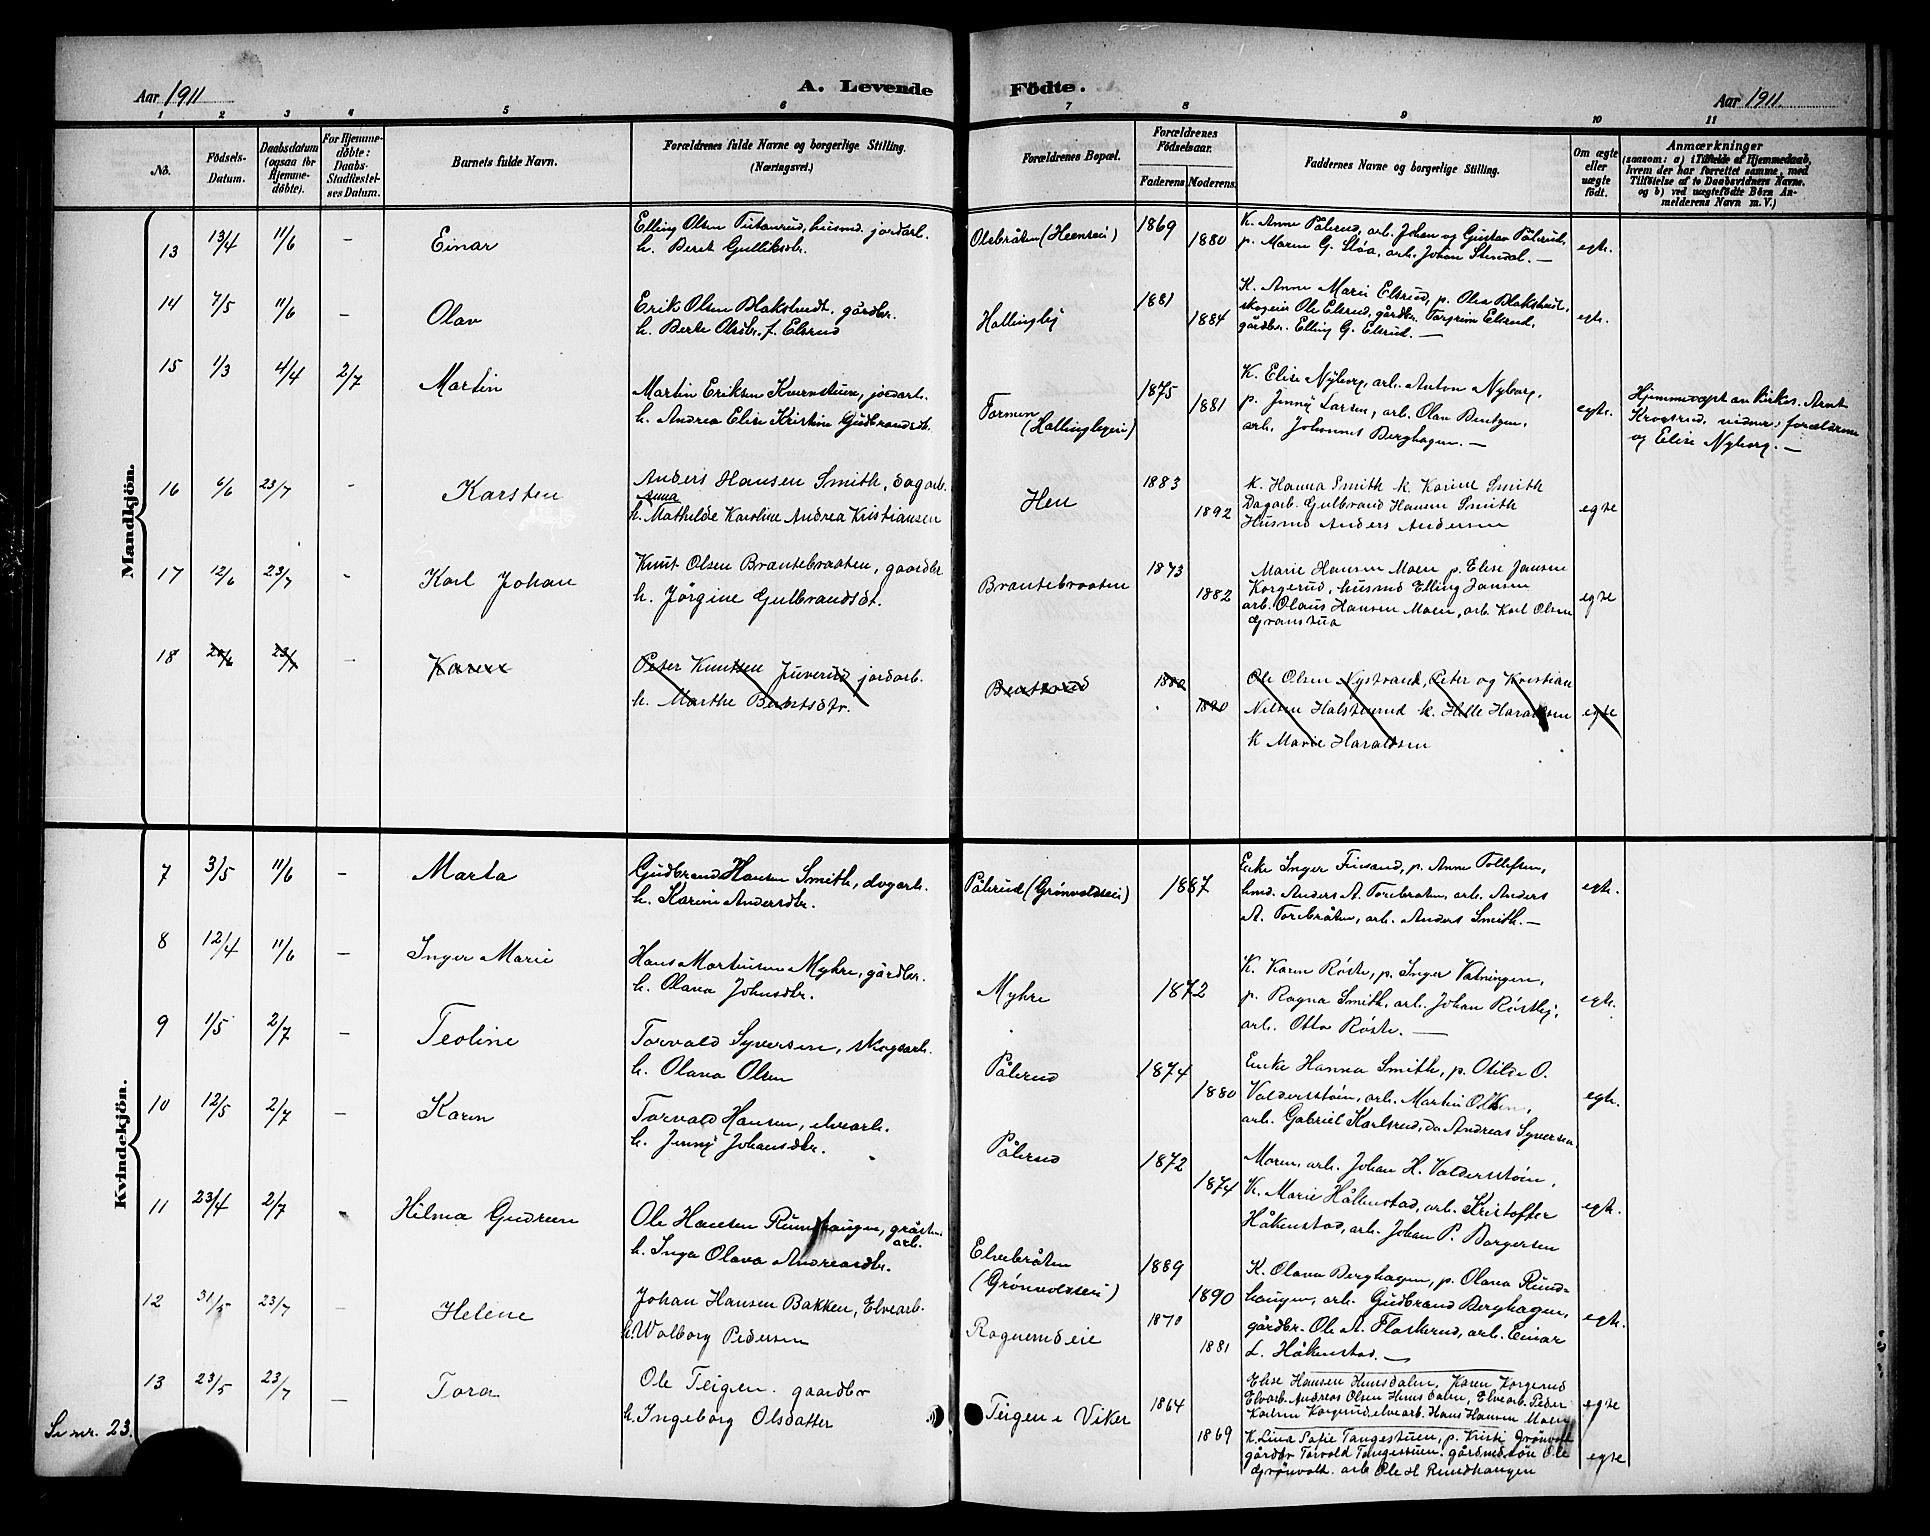 Aar 1911
A. Levende
Födte.
Aar 1911.
1 2 3 4 5 6 7 8 9 10 11
No.
Födsels-
Datum.
Daabsdatum
(ogsaa for
Hjemme-
døbte).
For Hjemme-
døbte:
Daabs-
Stadfæstel-
ses Datum.
Barnets fulde Navn.
Forældrenes fulde Navne og borgerlige Stilling.
(Næringsvei.)
Forældrenes Bopæl.
Forældrenes
Fødselsaar.
Faderens. Moderens.
Faddernes Navne og borgerlige Stilling.
Om ægte
eller
uægte
født.
Anmærkninger
(saasom: a) i Tilfælde af Hjemmedaab,
hvem der har forrettet samme, med
Tilføielse af to Daabsvidners Navne.
og b) ved uægtefødte Börn An-
melderens Navn m. V.)
Mandkjön.
13 13/4 11/6 – Einar
h. Beret Gulliksdtr.
Olsbråten (Heenseie)
1869
1880
K. Anne Pålerud, arb. Johan og Gustav Pålerud,
p. Maren G. Sløa, arb. Johan Stendal. —
egte.
14 7/5 11/6 – Olav
Erik Olsen Blakstvedt, gårdbr.
h. Berte Olsdtr. f. Elsrud
Hallingby
1881
1884
K. Anne Marie Elsrud, p. Olea Blakstvedt,
skogeier Ole Elsrud, gårdbr. Torgrim Elsrud,
gårdbr. Elling G. Elsrud. —
egte.
15 1/3 4/4 2/7 Martin
Martin Eriksen Kvernstuen, jordarb.
h. Andrea Elise Kristine Gudbrandsdt.
Tormen
(Hallingbyeie)
1875
1881
K. Elise Nyborg, arb. Anton Nyborg,
p. Jenny Larsen, arb. Olav Bentzen,
arb. Johannes Berghagen. —
egte.
Hjemmedøpt av kirkes. Arnt
Krogsrud, vidner: forældrene
og Elise Nyborg. —
16 6/6 23/7 - Karsten
Anders Hansen Smith, dagarb.
Anna
h. Mathilde Karoline Andrea Kristiansen
Hen
1883
1892
k. Hanna Smith k. Karine Smith
Dagarb. Gulbrand Hansen Smith
Husmd Anders Andersen
egte
17 12/6 23/7 - Karl Johan
Knut Olsen Brantebraaten, gaardbr
h. Jörgine Gulbrandsdt.
Brantebraaten
1873
1882
Marie Hansen Moen p. Elise Jansen
Korgerud, husmd Elling Jansen
arb. Olaus Hansen Moen, arb. Karl Olsen
Granstua
egte
18 20/6 23/7 – Karen
Peter Knutsen Juverud jordarb.
h. Marthe Berntsdtr.
Berntsrud
1880
1890
Ole Olsen Nystrand, Peter og Kristian
Nilsen Halstenrud k. Helle Haraldsen
k Marie Haraldsen
egte
Kvindekjön.
7 3/5 11/6 – Marta
Gudbrand Hansen Smith, dagarb.
h. Karine Andersdtr.
Pålerud (Grønvoldseie)
1887
Enke Inger Finsand, p. Anne Tollefsen,
hmd. Anders A. Torebråten, arb. Anders
A. Torebråten, arb. Anders Smith. —
egte.
8 12/4 11/6 – Inger Marie
Hans Martinsen Myhre, gårdbr.
h. Olava Johnsdtr.
Myhre
1872
K. Karen Røste, p. Inger Vatningen,
p. Ragna Smith, arb. Johan Røstby,
arb. Otto Røste. —
egte.
9 1/5 2/7 – Teoline
Torvald Syversen, skogsarb.
h. Olava Olsen
Pålerud
1874
1880
Enke Hanna Smith, p. Otilde O.
Valdersstøin, arb. Martin Olsen,
arb. Gabriel Karlsrud, do Andreas Syversen
egte.
10 12/5 2/7 – Karen
Torvald Hansen, elvearb.
h. Jenny Johansdtr.
Pålerud
1872
1874
Moren, arb. Johan H. Valdersstøin,
K. Marie Håkenstad, arb. Kristoffer
Håkenstad, arb. Johan P. Borgersen
egte.
11 23/4 2/7 - Hilma Gudrun
Ole Hansen Rundhaugen, gråsten
arb.
h. Inga Olava Andreasdtr.
Elvebråten
(Grønvoldseie)
1889
1890
K. Olava Berghagen, p. Olava Rund-
haugen, arb. Gudbrand Berghagen,
gårdbr. Ole A. Flaskerud, arb. Einar
L. Håkenstad. —
egte.
12 31/5 23/7 – Helene
Johan Hansen Bakken, Elvearb.
h. Walborg Pedersen
Ragnerudeie
1870
1881
Elise Hansen Hunsdalen, Karen Korgerud
Elvarb. Andreas Olsen Hunsdalen, Elvearb. Peder
Karlsen Korgerud, elvearb. Hans Hansen Moen
egte
13 23/5 23/7 – Tora
Ole Teigen. gaardbr
h. Ingeborg Olsdatter
Teigen i Viker
1864
1869
K. Lina Sofie Tangestuen, p. Kristi Grønvold
gårdbr Torvald Tangestuen. gårdmdsøn Ole
Grønvold. arb Ole H Rundhaugen
egte
Se nr. 23.